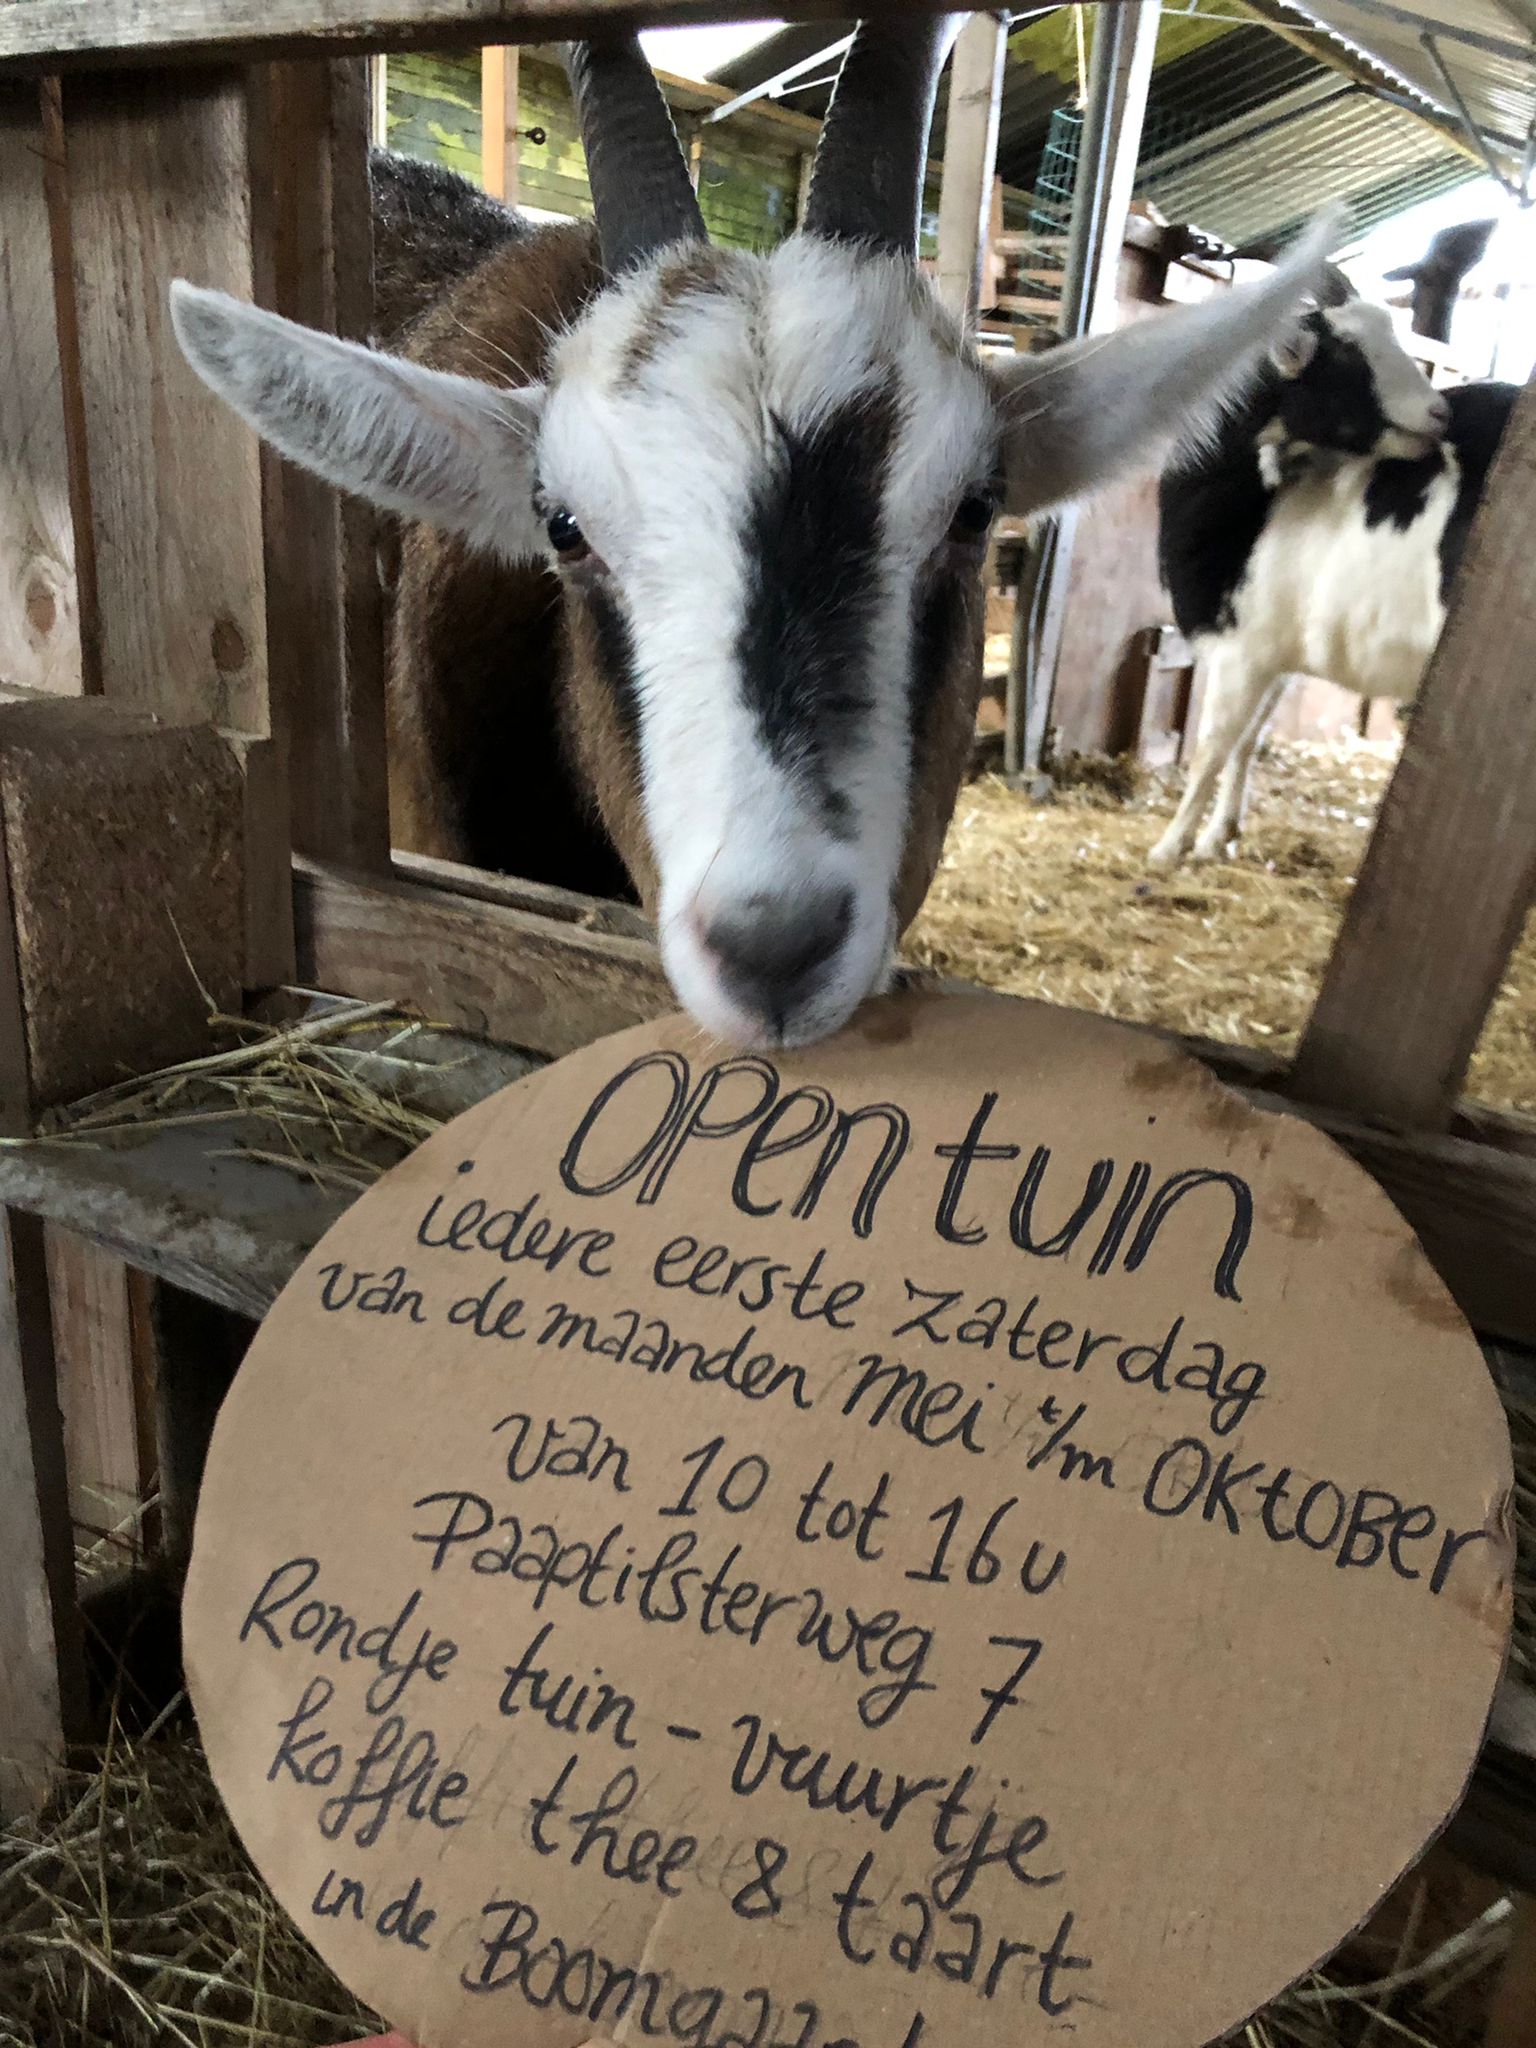 OPEN tuin
iedere eerste zaterdag
van de maanden mei t/m OKtOBer
van 10 tot 16 u
Paaptilsterweg 7
Rondje tuin - vuurtje
koffie thee & taart
in de Boomgaard